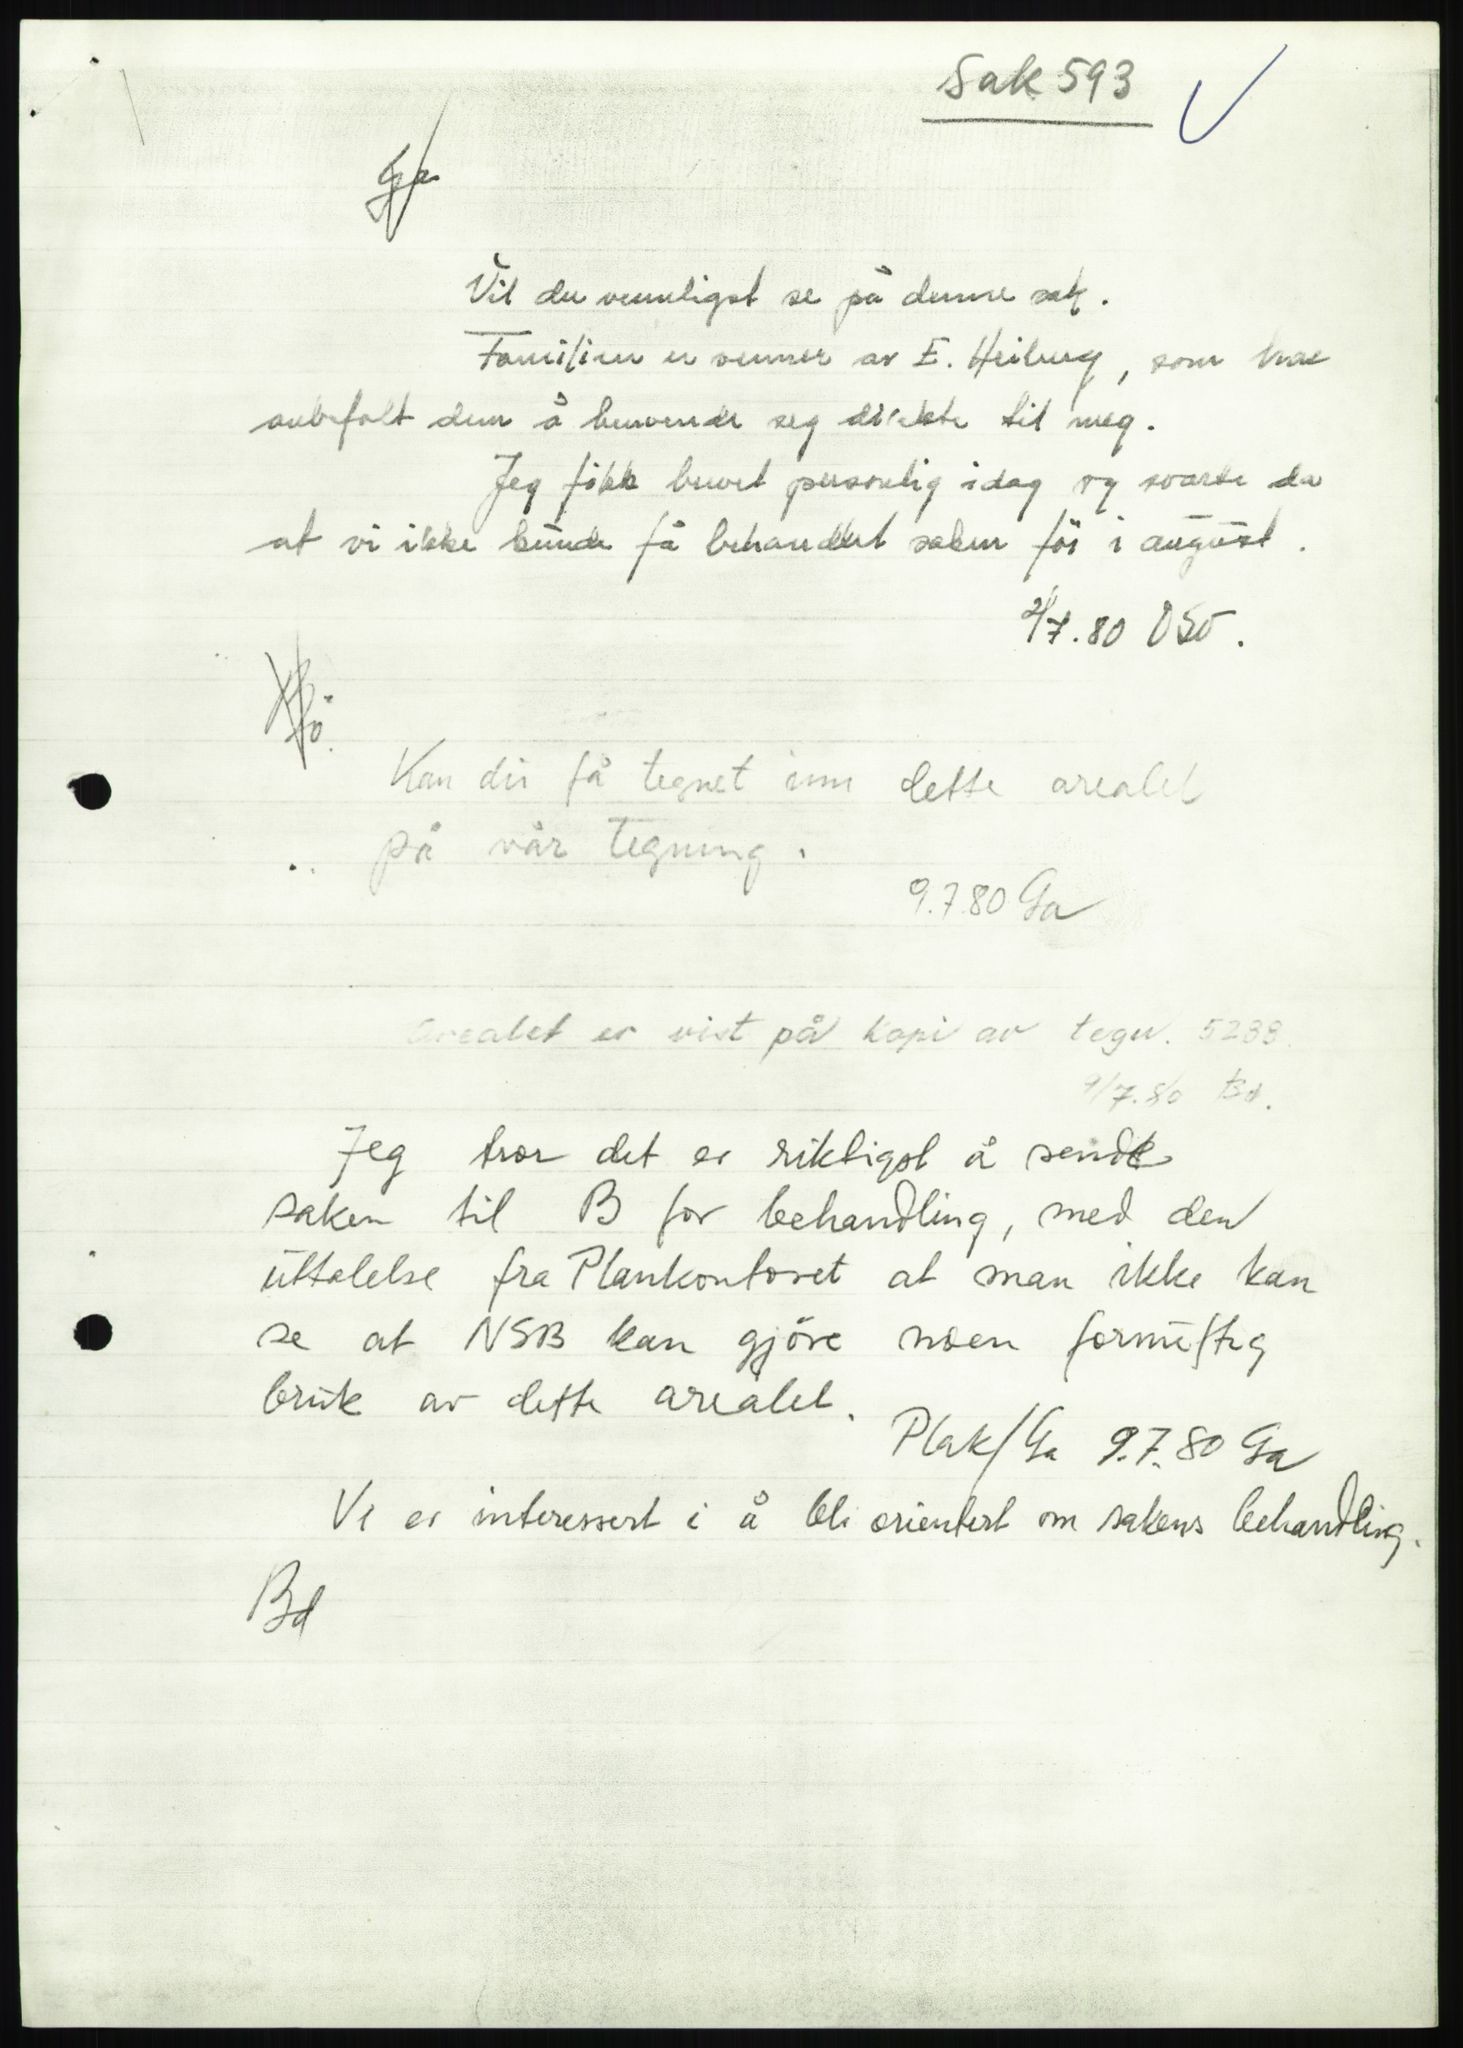 Sak 593
Ga
Vil du vennligst se på denne sak.
Familien er venner av E. Heiberg, som har
anbefalt dem å henvende seg direkte til meg.
Jeg fikk brevet personlig idag og svarte da
at vi ikke kunde få behandlet saken før i august.
2/7.80 OSö.
Kan du få tegnet inn dette arealet
på vår tegning.
9.7.80 Ga
Arealet er vist på kopi av tegn. 5238.
9/7.80 Bd.
Jeg tror det er riktigst å sende
saken til B for behandling, med den
uttalelse fra Plankontoret at man ikke kan
se at NSB kan gjöre noen fornuftig
bruk av dette arealet.
Plak/Ga 9.7.80 Ga
Vi er interessert i å bli orientert om sakens behandling.
Bd